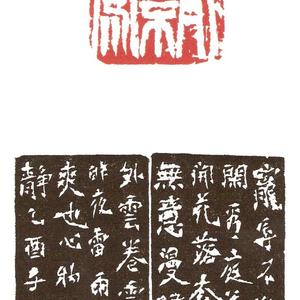 寵辱不
閑看庭
開花落去
無意漫
外雲卷雲
昨夜雷雨
爽也心物
静乙酉